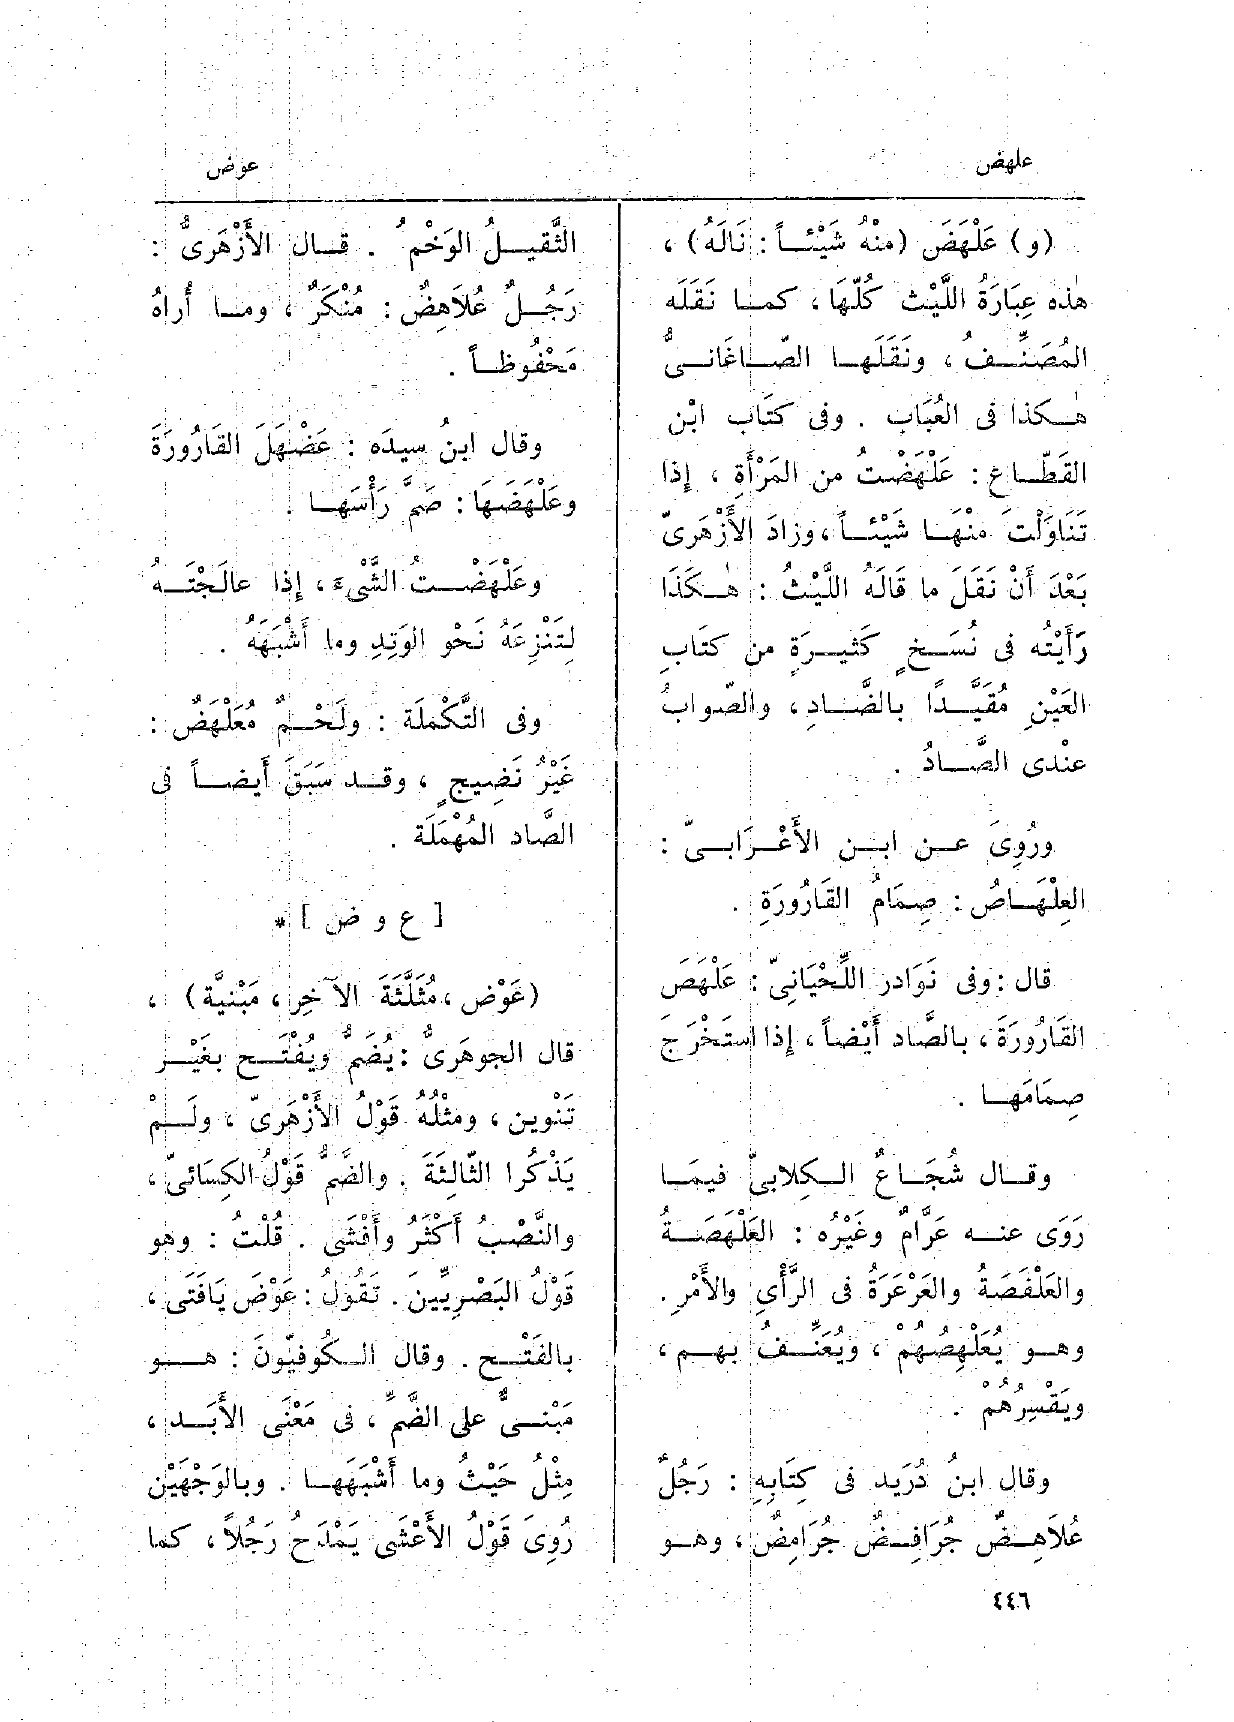 علهض
عوض
(و) عَلْهَضَ (مِنْهُ شَيْئـاً : نَالَهُ) ،
هٰذه عِبَارَةُ اللَّيْث كُلُّهَا ، كمـا نَقَلَه
المُصَنِّـفُ ، ونَقَلَهـا الصّـاغَانـىُّ
هٰـكذا فى العُبَاب . وفى كتَاب ابْن
القَطّـاع : عَلْهَضْتُ من المَرْأَةِ ، إذا
تَنَاوَلْتَ مِنْهَـا شَيْئـاً ، وزادَ الأَزْهَرىّ
بَعْدَ أَنْ نَقَلَ ما قَالَهُ اللَّيْثُ : هٰـكَذَا
رَأَيْتُه فى نُسَـخٍ كَثيـرَةٍ من كتَابِ
العَيْنِ مُقَيَّـدًا بالضَّـادِ ، والصّوابُ
عنْدى الصَّـادُ .
ورُوِىَ عـن ابـن الأَعْـرَابـىّ :
العِلْهَـاصُ : صِمَامُ القَارُورَةِ .
قال : وفى نَوَادر اللِّحْيَانِىّ : عَلْهَصَ
القَارُورَةَ ، بالصَّاد أَيْضاً ، إذا استَخْرَجَ
صِمَامَهـا .
وقـال شُجَـاعٌ الـكِلابىُّ فيمَـا
رَوَى عنـه عَرَّامٌ وغَيْرُه : العَلْهَصَـةُ
والعَلْفَصَةُ والعَرْعَرَةُ فى الرَّأْىِ والأَمْرِ .
وهـو يُعَلْهِصُهُمْ ، ويُعَنِّـفُ بهـم ،
ويَقْسِرُهُم .
وقال ابنُ دُرَيد فى كِتَابِهِ : رَجُلٌ
عُلاَهِـضٌ جُرَافِـضٌ جُرَامِضٌ ، وهـو
الثَّقيـلُ الوَخْمُ . قـال الأَزْهَرىُّ :
رَجُـلٌ عُلاَهِضٌ : مُنْكَرٌ ، ومـا أُراهُ
مَحْفُوظـاً .
وقال ابنُ سيدَه : عَضْهَلَ القَارُورَةَ
وعَلْهَضَهَا : صَمَّ رَأْسَهـا .
وعَلْهَضْـتُ الشَّىءَ ، إذا عالَجْتَـهُ
لِتَنْزِعَهُ نَحْو الوَتِدِ وما أَشْبَهَهُ .
وفى التَّكْملَة : ولَحْـمٌ مُعَلْهَضٌ :
غَيْرُ نَضِيجٍ ، وقـد سَبَقَ أَيضـاً فى
الصَّاد المُهْمَلَة .
[ ع و ض ] *
(عَوْض ، مُثَلَّثَةَ الآخِرِ ، مَبْنيَّة) ،
قال الجوهَرىُّ : يُضَمُّ ويُفْتَـح بغَيْـر
تَنْوين ، ومثلُهُ قَوْلُ الأَزْهَرىّ ، ولَـمْ
يَذْكُرا الثّالِثَةَ . والضَّمُّ قَوْلُ الكِسَائىّ ،
والنَّصْبُ أَكْثَرُ وأَفْشَى . قُلْتُ : وهو
قَوْلُ البَصْرِيِّينَ . تَقُولُ : عَوْضَ يَا فَتَى ،
بالفَتْـح . وقال الـكُوفيّونَ : هـو
مَبْنـىٌّ على الضَّمِّ ، فى مَعْنَى الأَبَـد ،
مِثْلُ حَيْثُ وما أَشْبَهَهـا . وبالوَجْهَيْن
رُوِىَ قَوْلُ الأَعْشَى يَمْدَحُ رَجُلاً ، كما
٤٤٦